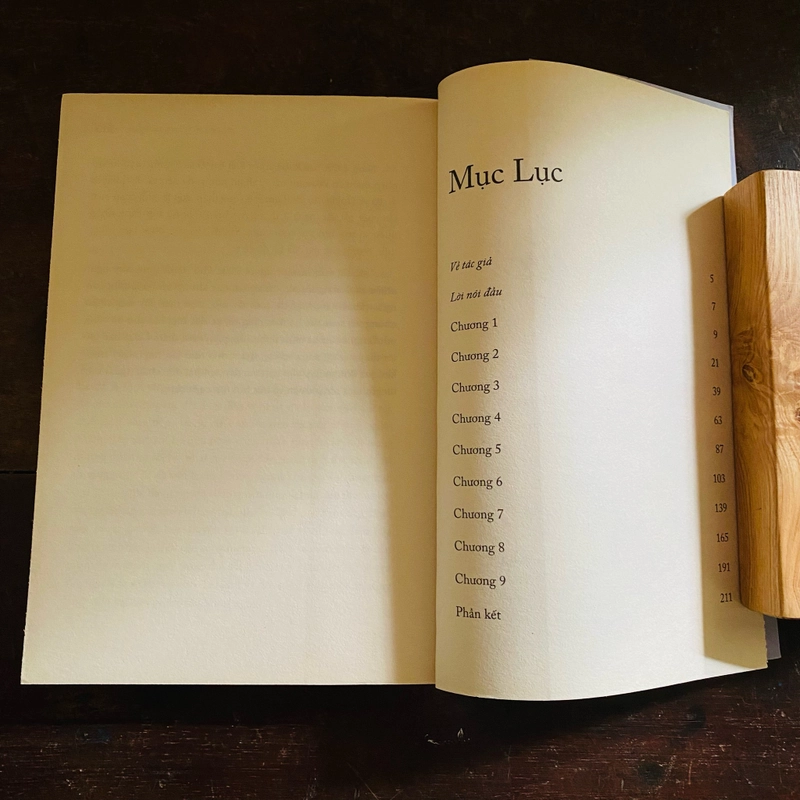 Mục Lục
Về tác giả 5
Lời nói đầu 7
Chương 1 9
Chương 2 21
Chương 3 39
Chương 4 63
Chương 5 87
Chương 6 103
Chương 7 139
Chương 8 165
Chương 9 191
Phần kết 211